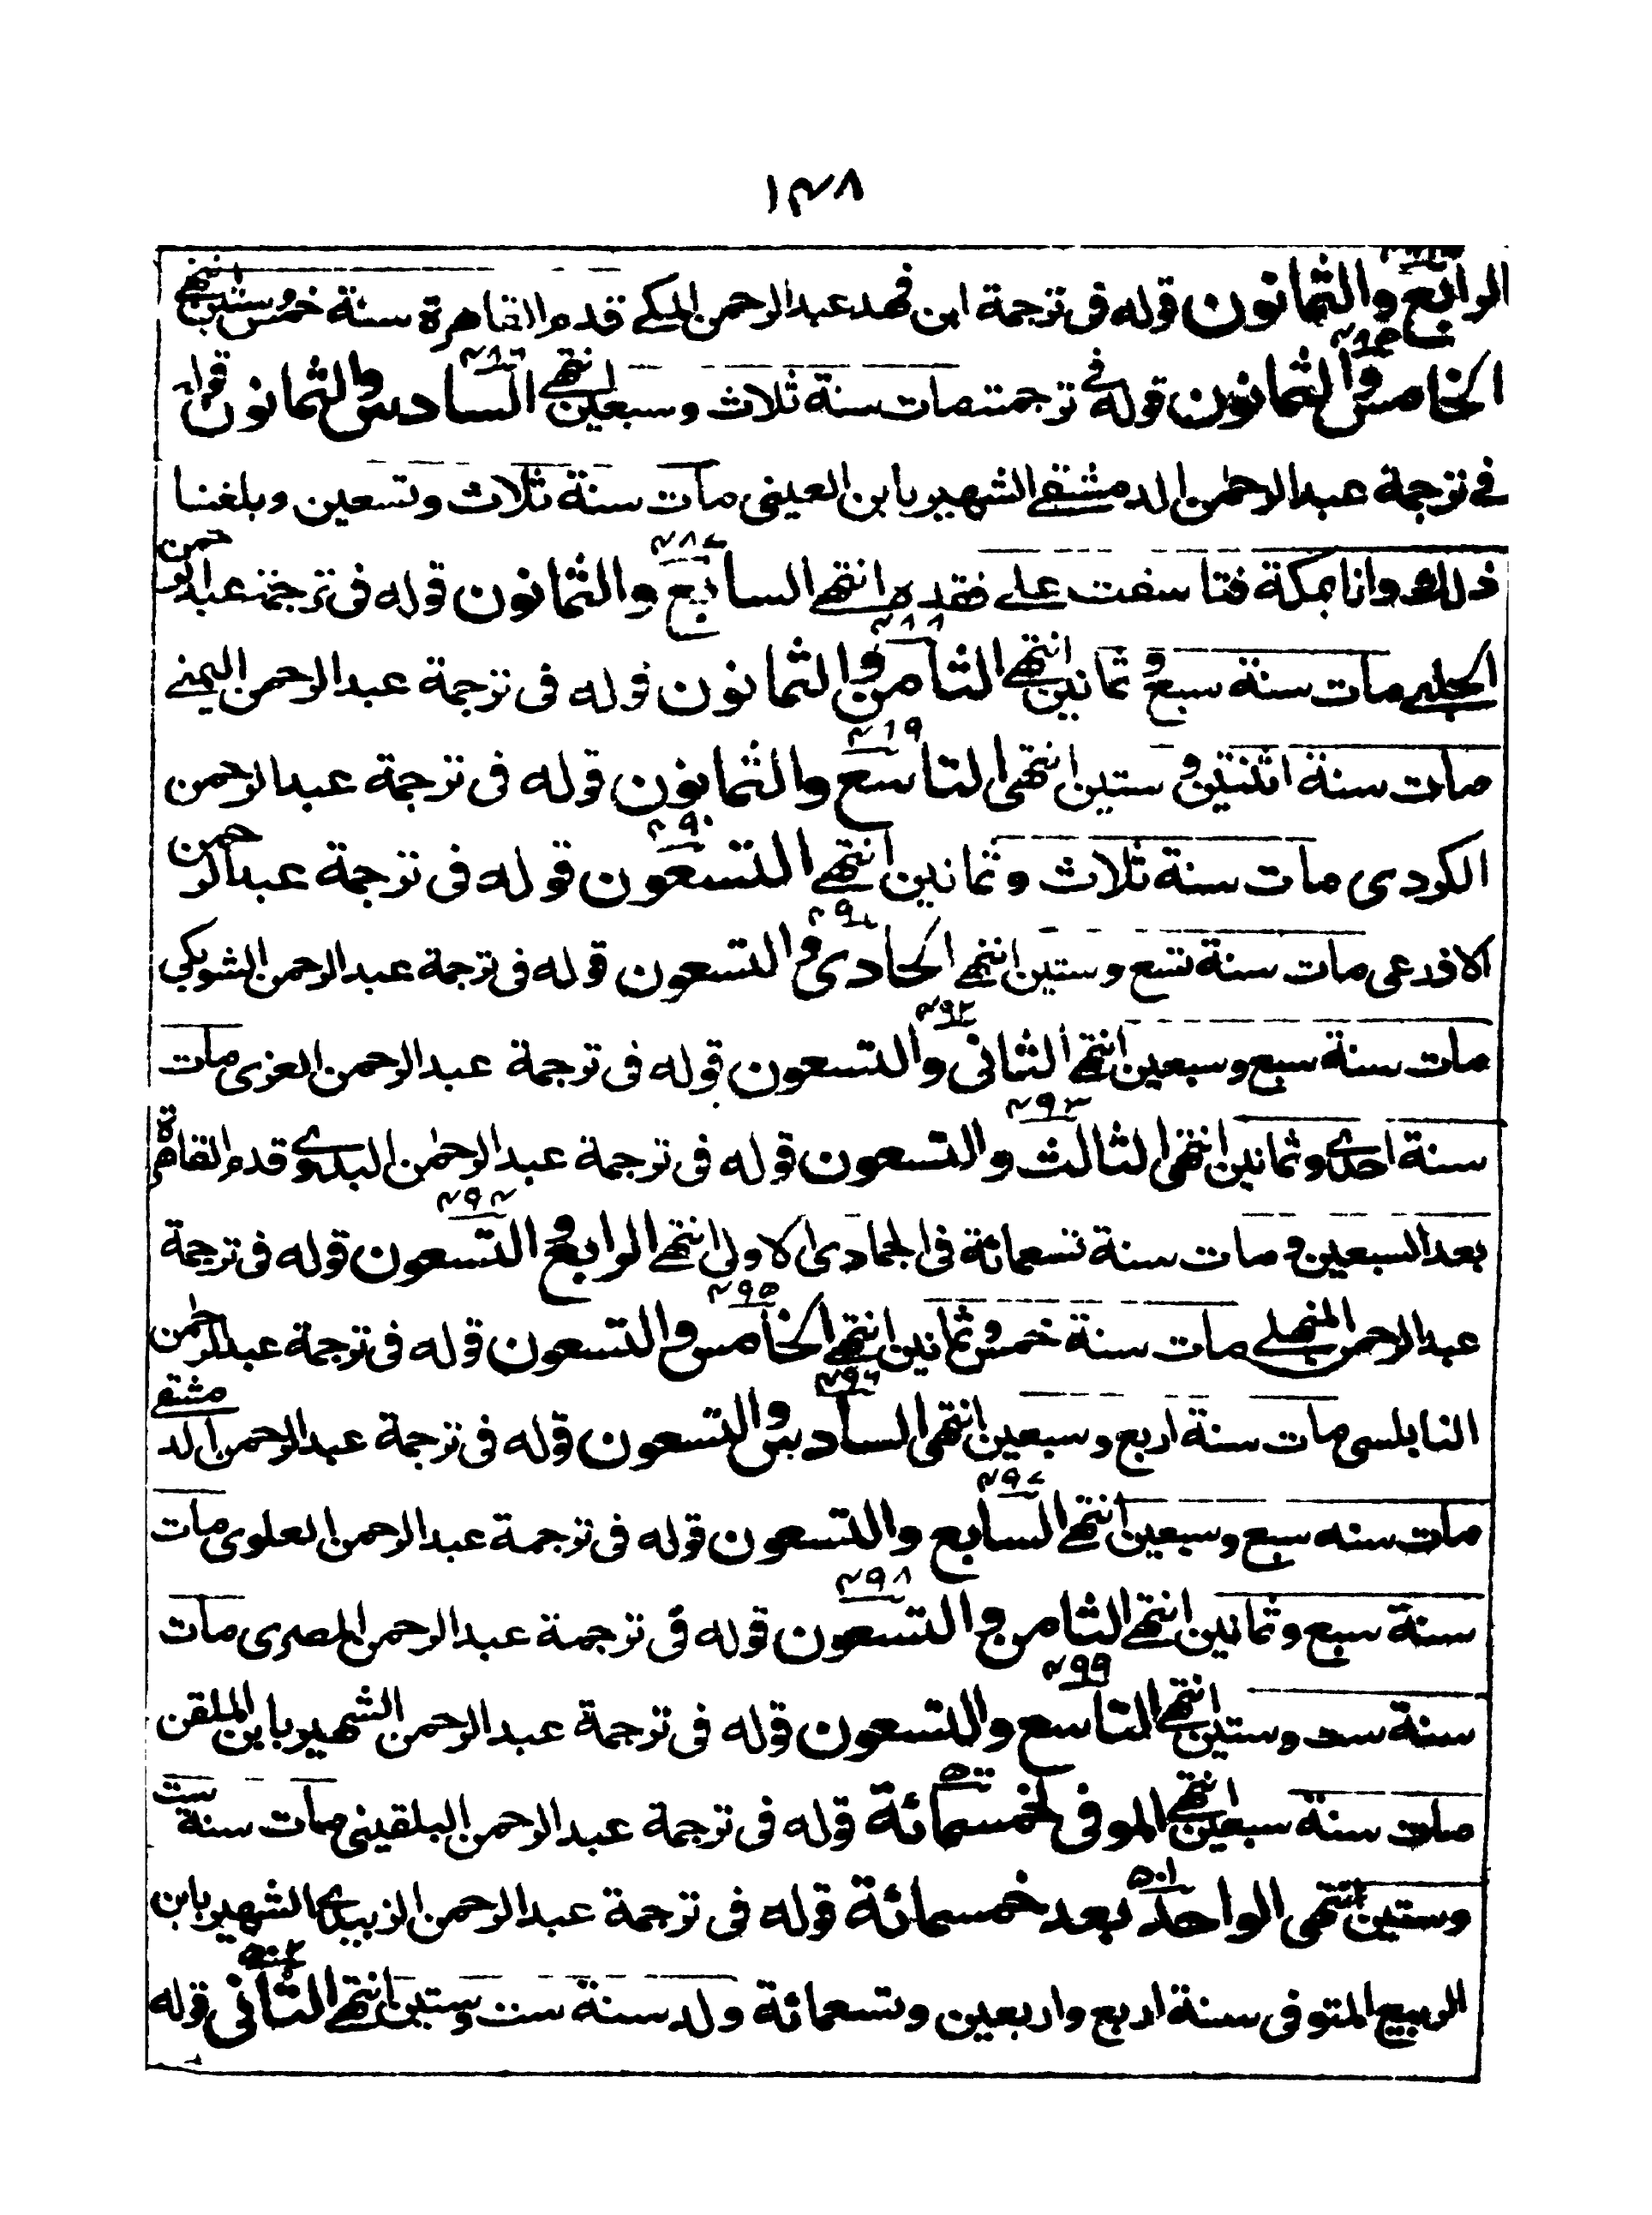 ١٤٨
الرابع والثمانون قوله فى ترجمة ابن فهد عبد الرحمن المكے قدم القاهرة سنة خمس وستين انتهے
٤٨٥
الخامس والثمانون قوله فے ترجمته مات سنة ثلاث وسبعين انتهے السادس والثمانون قوله
٤٨٦
فے ترجمة عبد الرحمٰن الدمشقے الشهير بابن العينى مات سنة ثلاث وتسعين وبلغنا
ذلك وانا بمكة فتاسفت علے فقده انتهے السابع والثمانون قوله فى ترجمة عبد الرحمن
٤٨٧
الحلبے مات سنة سبع وثمانين انتهے الثامن والثمانون قوله فى ترجمة عبد الرحمن اليمنے
٤٨٨
مات سنة اثنتين وستين انتهى التاسع والثمانون قوله فى ترجمة عبد الرحمن
٤٨٩
الكردى مات سنة ثلاث وثمانين انتهے التسعون قوله فى ترجمة عبد الرحمن
٤٩٠
الاذرعى مات سنة تسع وستين انتهے الحادى والتسعون قوله فى ترجمة عبد الرحمن الشويكى
٤٩١
مات سنة سبع وسبعين انتهے الثانى والتسعون قوله فى ترجمة عبد الرحمن العزى مات
٤٩٢
سنة احدے وثمانين انتهى الثالث والتسعون قوله فى ترجمة عبد الرحمٰن قدم القاهرة
٤٩٣
بعد السبعين ومات سنة تسعمائة فى الجمادى الاولى انتهے الرابع والتسعون قوله فى ترجمة
٤٩٤
عبد الرحمن المنهلے مات سنة خمس وثمانين انتهے الخامس والتسعون قوله فى ترجمة عبد الرحمٰن
٤٩٥
النابلسى مات سنة اربع وسبعين انتهى السادس والتسعون قوله فى ترجمة عبد الرحمن الدمشقے
٤٩٦
مات سنه سبع وسبعين انتهے السابع والتسعون قوله فى ترجمة عبد الرحمن العلوى مات
٤٩٧
سنة سبع وثمانين انتهے الثامن والتسعون قوله فى ترجمة عبد الرحمن المصرى مات
٤٩٨
سنة ست وستين انتهے التاسع والتسعون قوله فى ترجمة عبد الرحمن الشهير بابن الملقن
٤٩٩
مات سنة سبعين انتهے الموفى لخمسمائة قوله فى ترجمة عبد الرحمن البلقينى مات سنة ست
٥٠٠
وستين انتهى الواحد بعد خمسمائة قوله فى ترجمة عبد الرحمن الزبيدے الشهير بابن
٥٠١
الربيع المتوفى سنة اربع واربعين وتسعمائة ولد سنة ست وستين انتهے الثانى قوله
٥٠٢